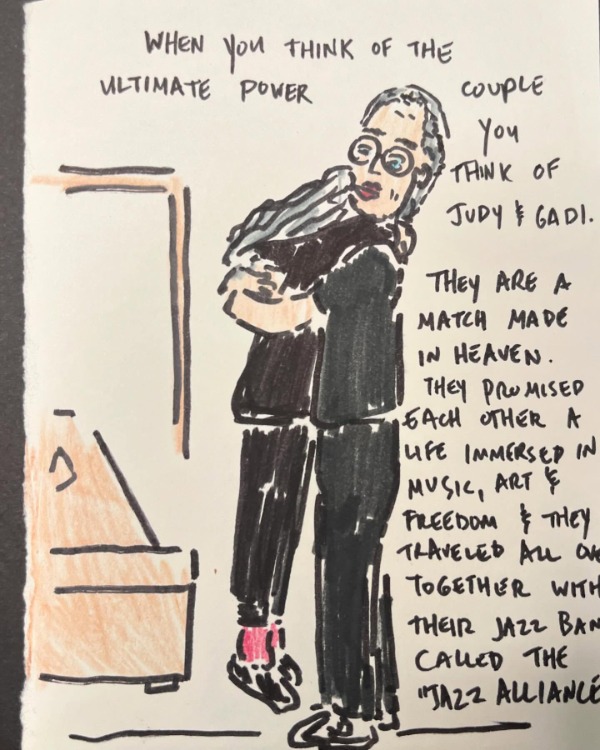 WHEN YOU THINK OF THE
ULTIMATE POWER COUPLE
YOU
THINK OF
JUDY & GADI.
THEY ARE A
MATCH MADE
IN HEAVEN.
THEY PROMISED
EACH OTHER A
LIFE IMMERSED IN
MUSIC, ART &
FREEDOM & THEY
TRAVELED ALL OV
TOGETHER WITH
THEIR JAZZ BAN
CALLED THE
"JAZZ ALLIANCE